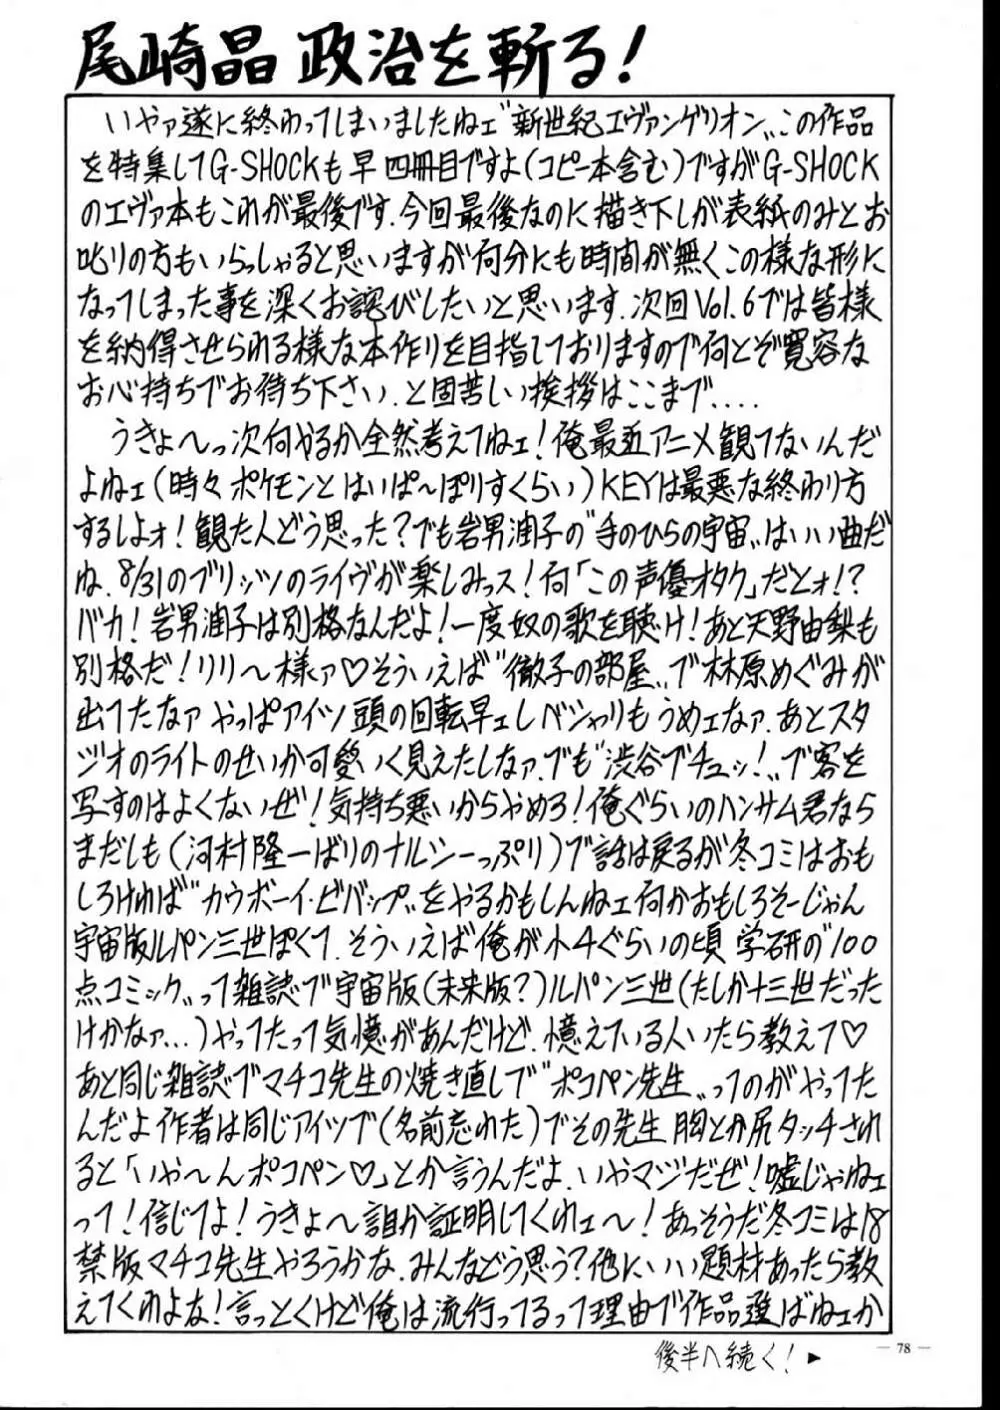 尾崎晶 政治を斬る!
いやァ遂に終わってしまいましたねェ"新世紀エヴァンゲリオン„この作品
を特集してG-SHOCKも早四冊目ですよ(コピー本含む)ですがG-SHOCK
のエヴァ本もこれが最後です.今回最後なのに描き下しが表紙のみとお
叱りの方もいらっしゃると思いますが何分にも時間が無くこの様な形に
なってしまった事を深くお詫びしたいと思います.次回Vol.6では皆様
を納得させられる様な本作りを目指しておりますので何とぞ寛容な
お心持ちでお待ち下さい.と固苦しい挨拶はここまで....
うきょ〜っ次何やるか全然考えてねェ!俺最近アニメ観てないんだ
よねェ(時々ポケモンとはいぱ〜ぽりすくらい)KEYは最悪な終わり方
するしよォ!観た人どう思った?でも岩男潤子の"手のひらの宇宙„はいい曲だ
ね.8/31のブリッツのライヴが楽しみっス!何「この声優オタク」だとォ!?
バカ!岩男潤子は別格なんだよ!一度奴の歌を聴け!あと天野由梨も
別格だ!リリ〜様ァ♡そういえば"徹子の部屋„で林原めぐみが
出てたなァ やっぱアイツ頭の回転早ェしベシャリもうめェなァ.あとスタ
ジオのライトのせいか可愛いく見えたしなァ.でも"渋谷でチュッ!„で客を
写すのはよくないぜ!気持ち悪いからやめろ!俺ぐらいのハンサム君なら
まだしも(河村隆一ばりのナルシーっぷり)で話は戻るが冬コミはおも
しろければ"カウボーイ・ビバップ„をやるかもしんねェ何かおもしろそーじゃん
宇宙版ルパン三世ぽくて.そういえば俺が小4ぐらいの頃 学研の"100
点コミック„って雑誌で宇宙版(未来版?)ルパン三世(たしか十三世だった
けかなァ...)やってたって気憶があんだけど.憶えている人いたら教えて♡
あと同じ雑誌でマチコ先生の焼き直しで"ポコペン先生„ってのがやってた
んだよ作者は同じアイツで(名前忘れた)でその先生 胸とか尻タッチされ
ると「いや〜んポコペン♡」とか言うんだよ.いやマジだぜ!嘘じゃねェ
って!信じてよ!うきょ〜誰か証明してくれェ〜!あっそうだ冬コミは18
禁版マチコ先生やろうかな.みんなどう思う?他にいい題材あったら教
えてくれよな!言っとくけど俺は流行ってるって理由で作品選ばねェか
後半へ続く!▶
— 78 —